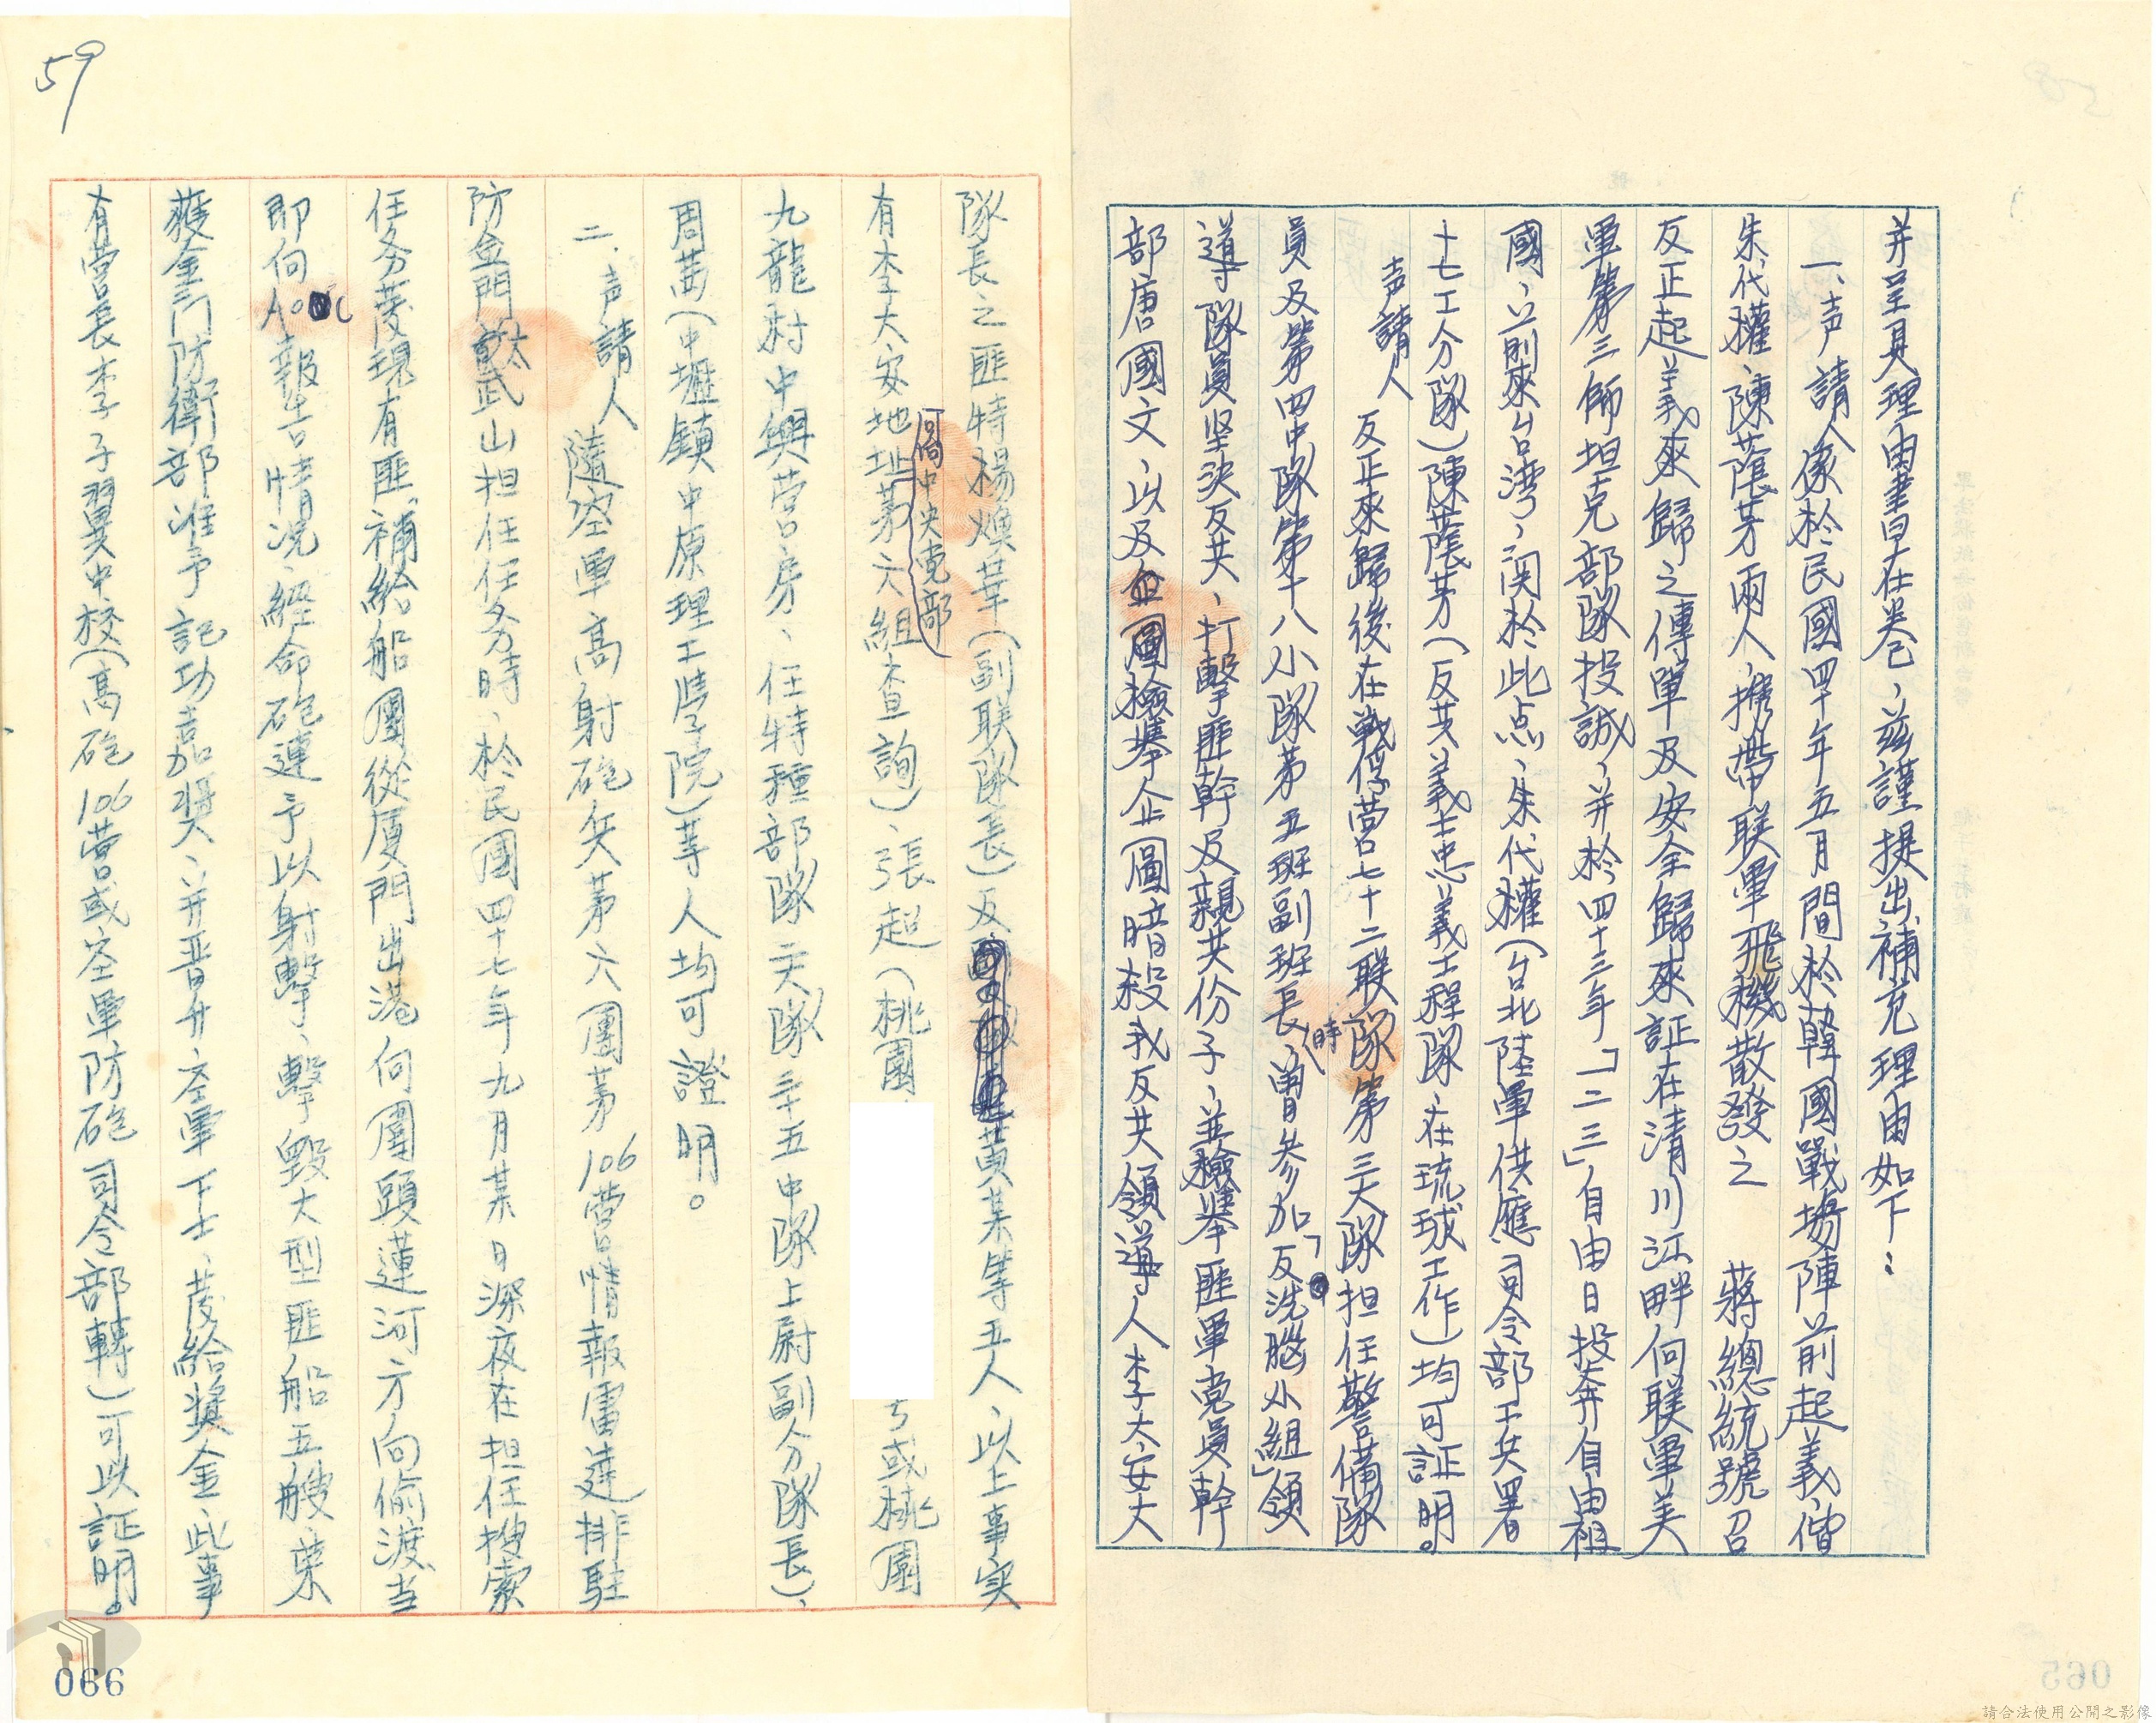 并呈具理由書在卷、茲謹提出補充理由如下：
一、声請人像於民國四十年五月間於韓國戰場陣前起義、偕
朱代權、陳蔭芳兩人、攜帶联軍飛機散發之　蔣總統號召
反正起義來歸之傳單及安全歸來証在清川江畔向联軍美
軍第三師坦克部隊投誠、并於四十三年「一二三」自由日投奔自由祖
國、前來台湾、関於此点、朱代權(台北陸軍供應司令部工兵署
十七工分隊)陳蔭芳(反共義士忠義士程隊、在琉球工作)均可証明。
声請人反正來歸後在戰俘营七十二联隊第三大隊担任警備隊
員及第四中隊第十八小隊第五班副班長時、曾参加「反洗腦小組」領
導隊員坚決反共、打擊匪幹及親共份子、並檢舉匪軍党員幹
部唐國文、以及企圖檢舉企圖暗殺我反共領導人李大安大
隊長之匪特楊煥華(副联隊長)及黃某等五人、以上事实
有李大安地址(向中央党部第六組查詢)、張超(桃園
号或桃園
九龍村中興营房、任特種部隊二大隊三十五中隊上尉副分隊長)、
周茜(中壢鎮中原理工學院)等人均可證明。
二、声請人隨空軍高射砲兵第六團第106营情報雷達排駐
防金門太武山担任任务時、於民國四十七年九月某日深夜在担任搜索
任务发現有匪補給船團從厦門出港向圍頭蓮河方向偷渡、当
即向AOC報告情況、經命砲連予以射擊、擊毀大型匪船五艘、荣
獲金門防衛部准予記功嘉奖、并晋升空軍下士、发給奬金、此事
有营長李子翼中校(高砲106营或空軍防砲司令部轉)可以証明。
59
066
065
請合法使用公開之影像